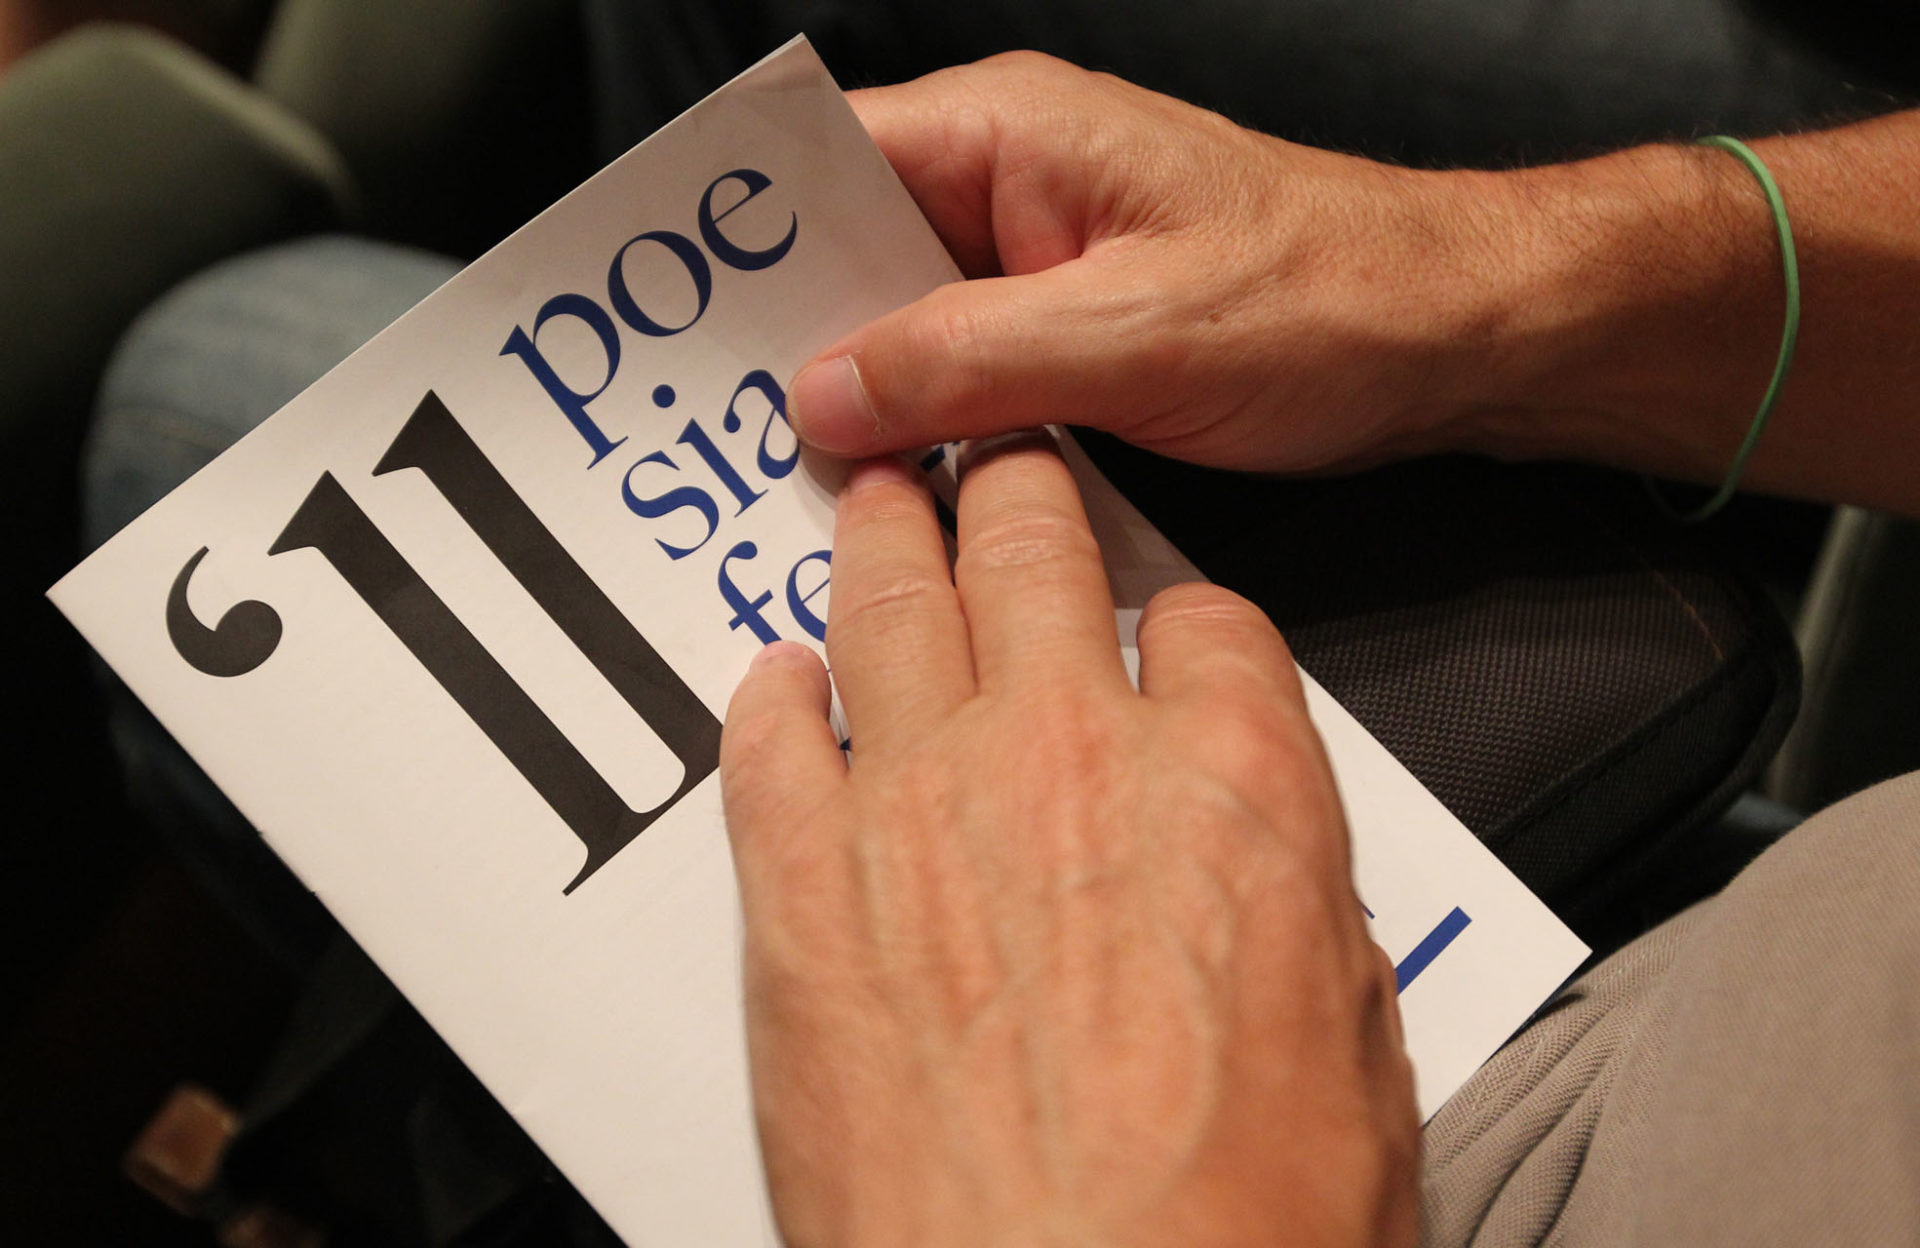 '11
poe
sia
fe